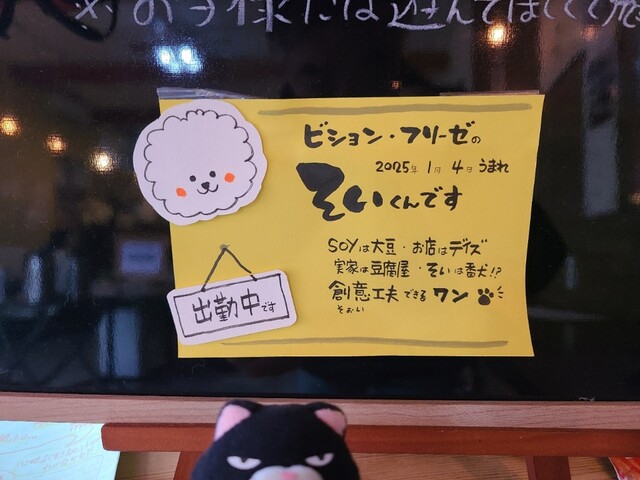 ※お子様だけ
ビション・フリーゼの
2025年 1月 4日 うまれ
そいくんです
SOYは大豆・お店はデイズ
実家は豆腐屋・そいは番犬!?
創意工夫できるワン
そおい
出勤中です